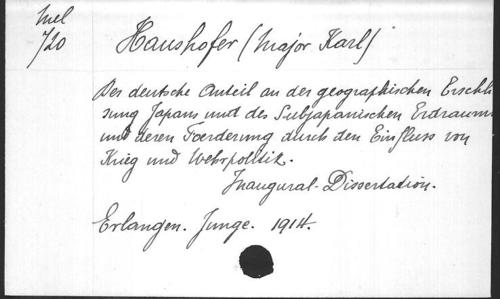 Mel
720
Haushofer (Major Karl)
Der deutsche Anteil an der geographischen Erschlie
sung Japans und des Subjapanischen Erdraums
und deren Foerderung durch den Einfluss von
Krieg und Wehrpolitik.
Inaugural-Dissertation.
Erlangen. Junge. 1914.